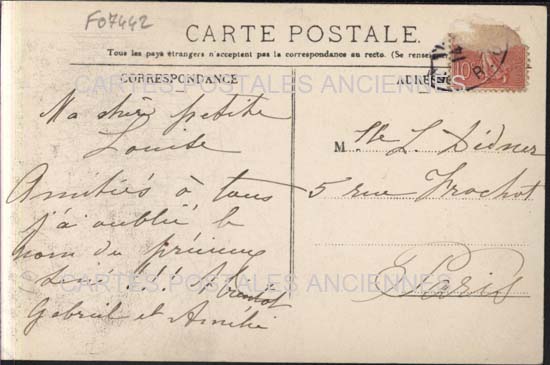 F07442
CARTE POSTALE.
Tous les pays étrangers n'acceptent pas la correspondance au recto. (Se rense
CORRESPONDANCE
ADRE
CARTES POSTALES ANCIENNES
Ma chère petite
Louise
Amitiés à tous
j'ai oublié le
nom du
Gabriel et Amélie
M lle L. Didner
5 rue Frochot
Paris
CARTES POSTALES ANCIENNES
10